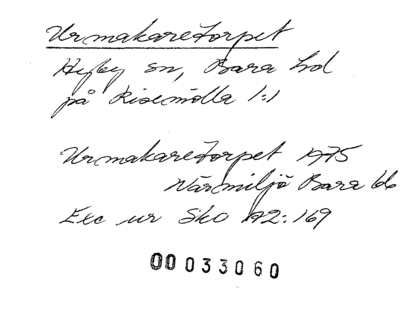 Urmakaretorpet
Hyby sn, Bara hd
på Risemölla 1:1
Urmakaretorpet 1975
Närmiljö Bara bl6
Exc ur Sko A2:169
00033060